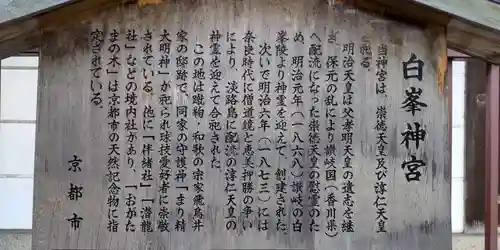 白峯神宮
当神宮は、崇徳天皇及び淳仁天皇
を祀る。
明治天皇は父孝明天皇の遺志を継
ぎ、保元の乱により讃岐国(香川県)
へ配流になった崇徳天皇の慰霊のた
め、明治元年(一八六八)讃岐の白
峯陵より神霊を迎えて、創建された。
次いで明治六年(一八七三)には
奈良時代に僧道鏡と恵美押勝の争い
により、淡路島に配流の淳仁天皇の
神霊を迎えて合祀された
この地は蹴鞠・和歌の宗家飛鳥井
家の邸跡で、同家の守護神「まり精
大明神」が祀られ球技愛好者に崇敬
されている。他に「伴緒社」「潜龍
社」などの境内社があり、「おがた
まの木」は京都市の天然記念物に指
定されている。
京都市